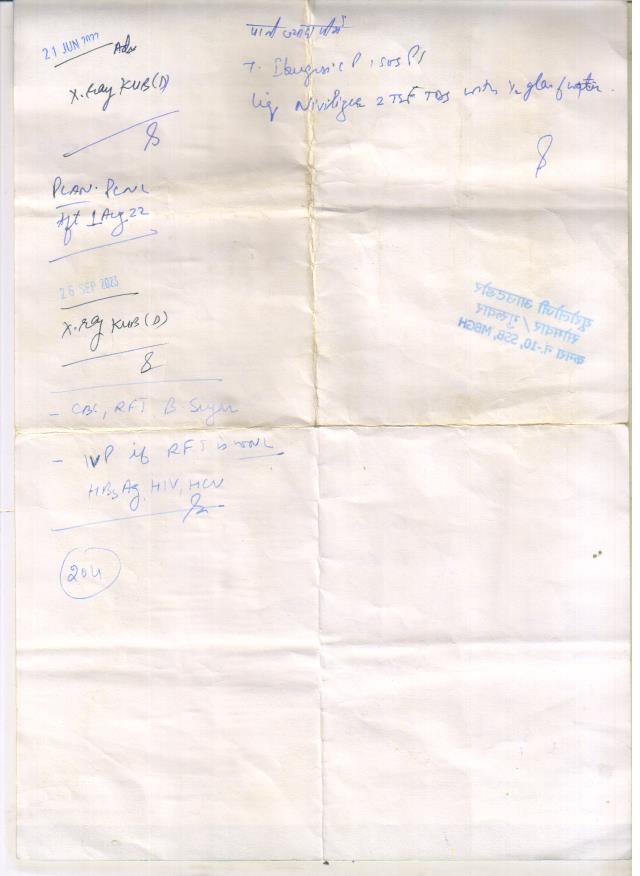 21 JUN 2022
Adv
X-Ray KUB (D)
PLAN- PCNL
1 Aug 22
26 SEP 2023
X-Ray KUB (D)
- CBC, RFT B. Sugar
- IVP if RFT is WNL
HBsAg, HIV, HCV
204
पानी ज्यादा पीयें
T. Ibugesic P 1 SOS
Liq 2 TSF TDS with ½ glass of water.
युरोलॉजी आउटडोर
सोमवार / गुरुवार
कमरा नं.-10, SSB, MBGH